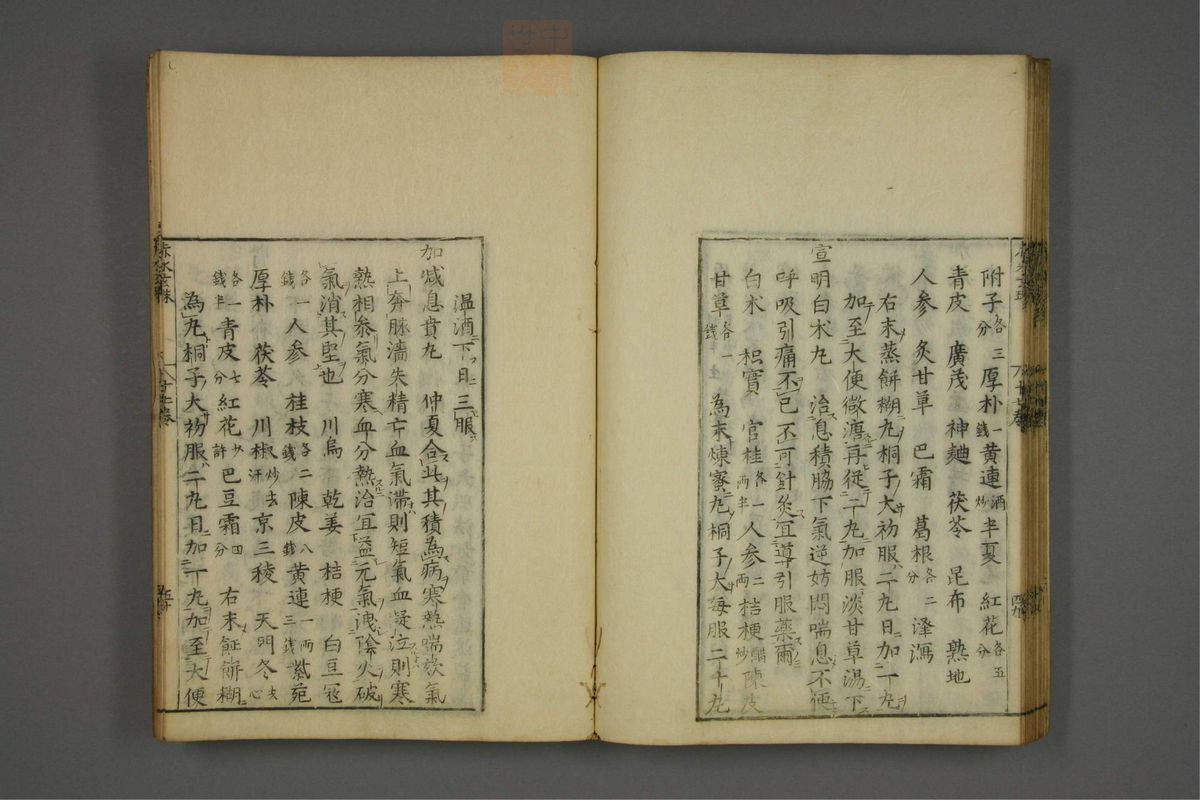 附子各三分厚朴一錢黄連酒炒半夏 紅花各五分
青皮 廣茂 神麯 茯苓 昆布 熟地
人参 炙甘草 巴霜 葛根各二分澤瀉
右末蒸餅糊丸桐子大初服二丸日加一丸
加至大便微溏再從二丸加服淡甘草湯下
宣明白术丸 治息積脇下氣逆妨悶喘息不便
呼吸引痛不已不可針灸宜導引服藥爾
白术 枳實 官桂各一兩半人参二兩桔梗醋炒陳皮
甘草各一錢 為末煉蜜丸桐子大每服二十丸
温酒下日三服
加减息賁丸 仲夏合此其積為病寒熱喘欬氣
上奔脉濇失精亡血氣滯則短氣血凝泣則寒
熱相參氣分寒血分熱治宜益元氣洩陰火破
氣消其堅也 川烏 乾姜 桔梗 白豆冦
各一錢人参 桂枝各二錢陳皮八錢黄連一兩三錢紫菀
厚朴 茯苓 川椒炒去汗京三稜 天門冬去心
各一錢半青皮七分紅花少許巴豆霜四分 右末蒸餅糊
為丸桐子大初服二丸日加一丸加至大便
赤水玄珠